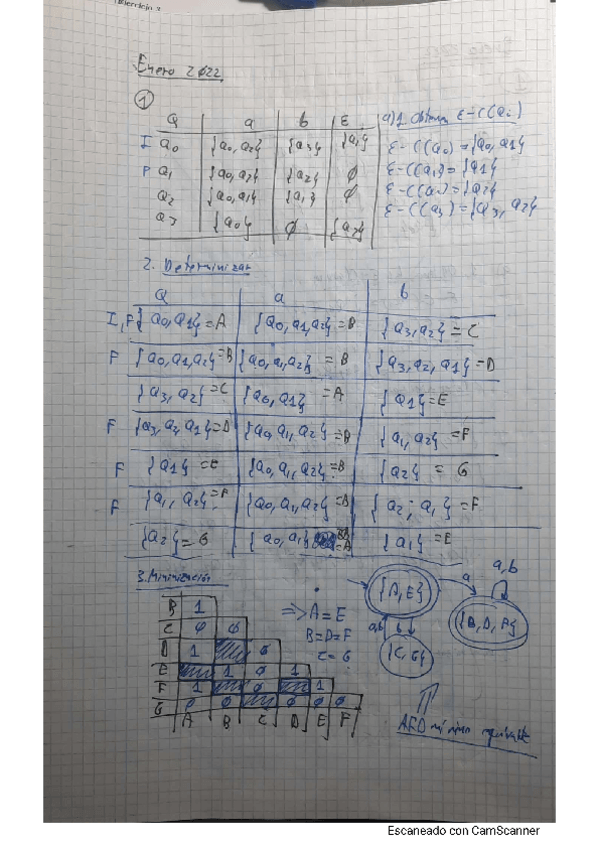 Enero 2022
1
Q a b ε
I q0 {q0,q2} {q3} {q1}
F q1 {q0,q2} {q2} ∅
q2 {q0,q1} {q1} ∅
q3 {q0} ∅ {q2}
a) 1. Obtener ε-C(q0)
ε-C(q0)={q0,q1}
ε-C(q1)={q1}
ε-C(q2)={q2}
ε-C(q3)={q3,q2}
2. Determinizar
Q a b
I,F {q0,q1}=A {q0,q1,q2}=B {q3,q2}=C
F {q0,q1,q2}=B {q0,q1,q2}=B {q3,q2,q1}=D
{q3,q2}=C {q0,q1}=A {q1}=E
F {q3,q2,q1}=D {q0,q1,q2}=B {q1,q2}=F
F {q1}=E {q0,q1,q2}=B {q2}=G
F {q1,q2}=F {q0,q1,q2}=B {q2,q1}=F
{q2}=G {q0,q1}=A {q1}=E
3. Minimización
B 1
C 0 0
D 1 0
E 1 0 1
F 1 0 1
G 0 0 0 0 0
A B C D E F
=> A=E
B=D=F
C=G
{A,E}
a
a,b
{B,D,F}
a,b b
{C,G}
AFD mínimo equivalente
Escaneado con CamScanner